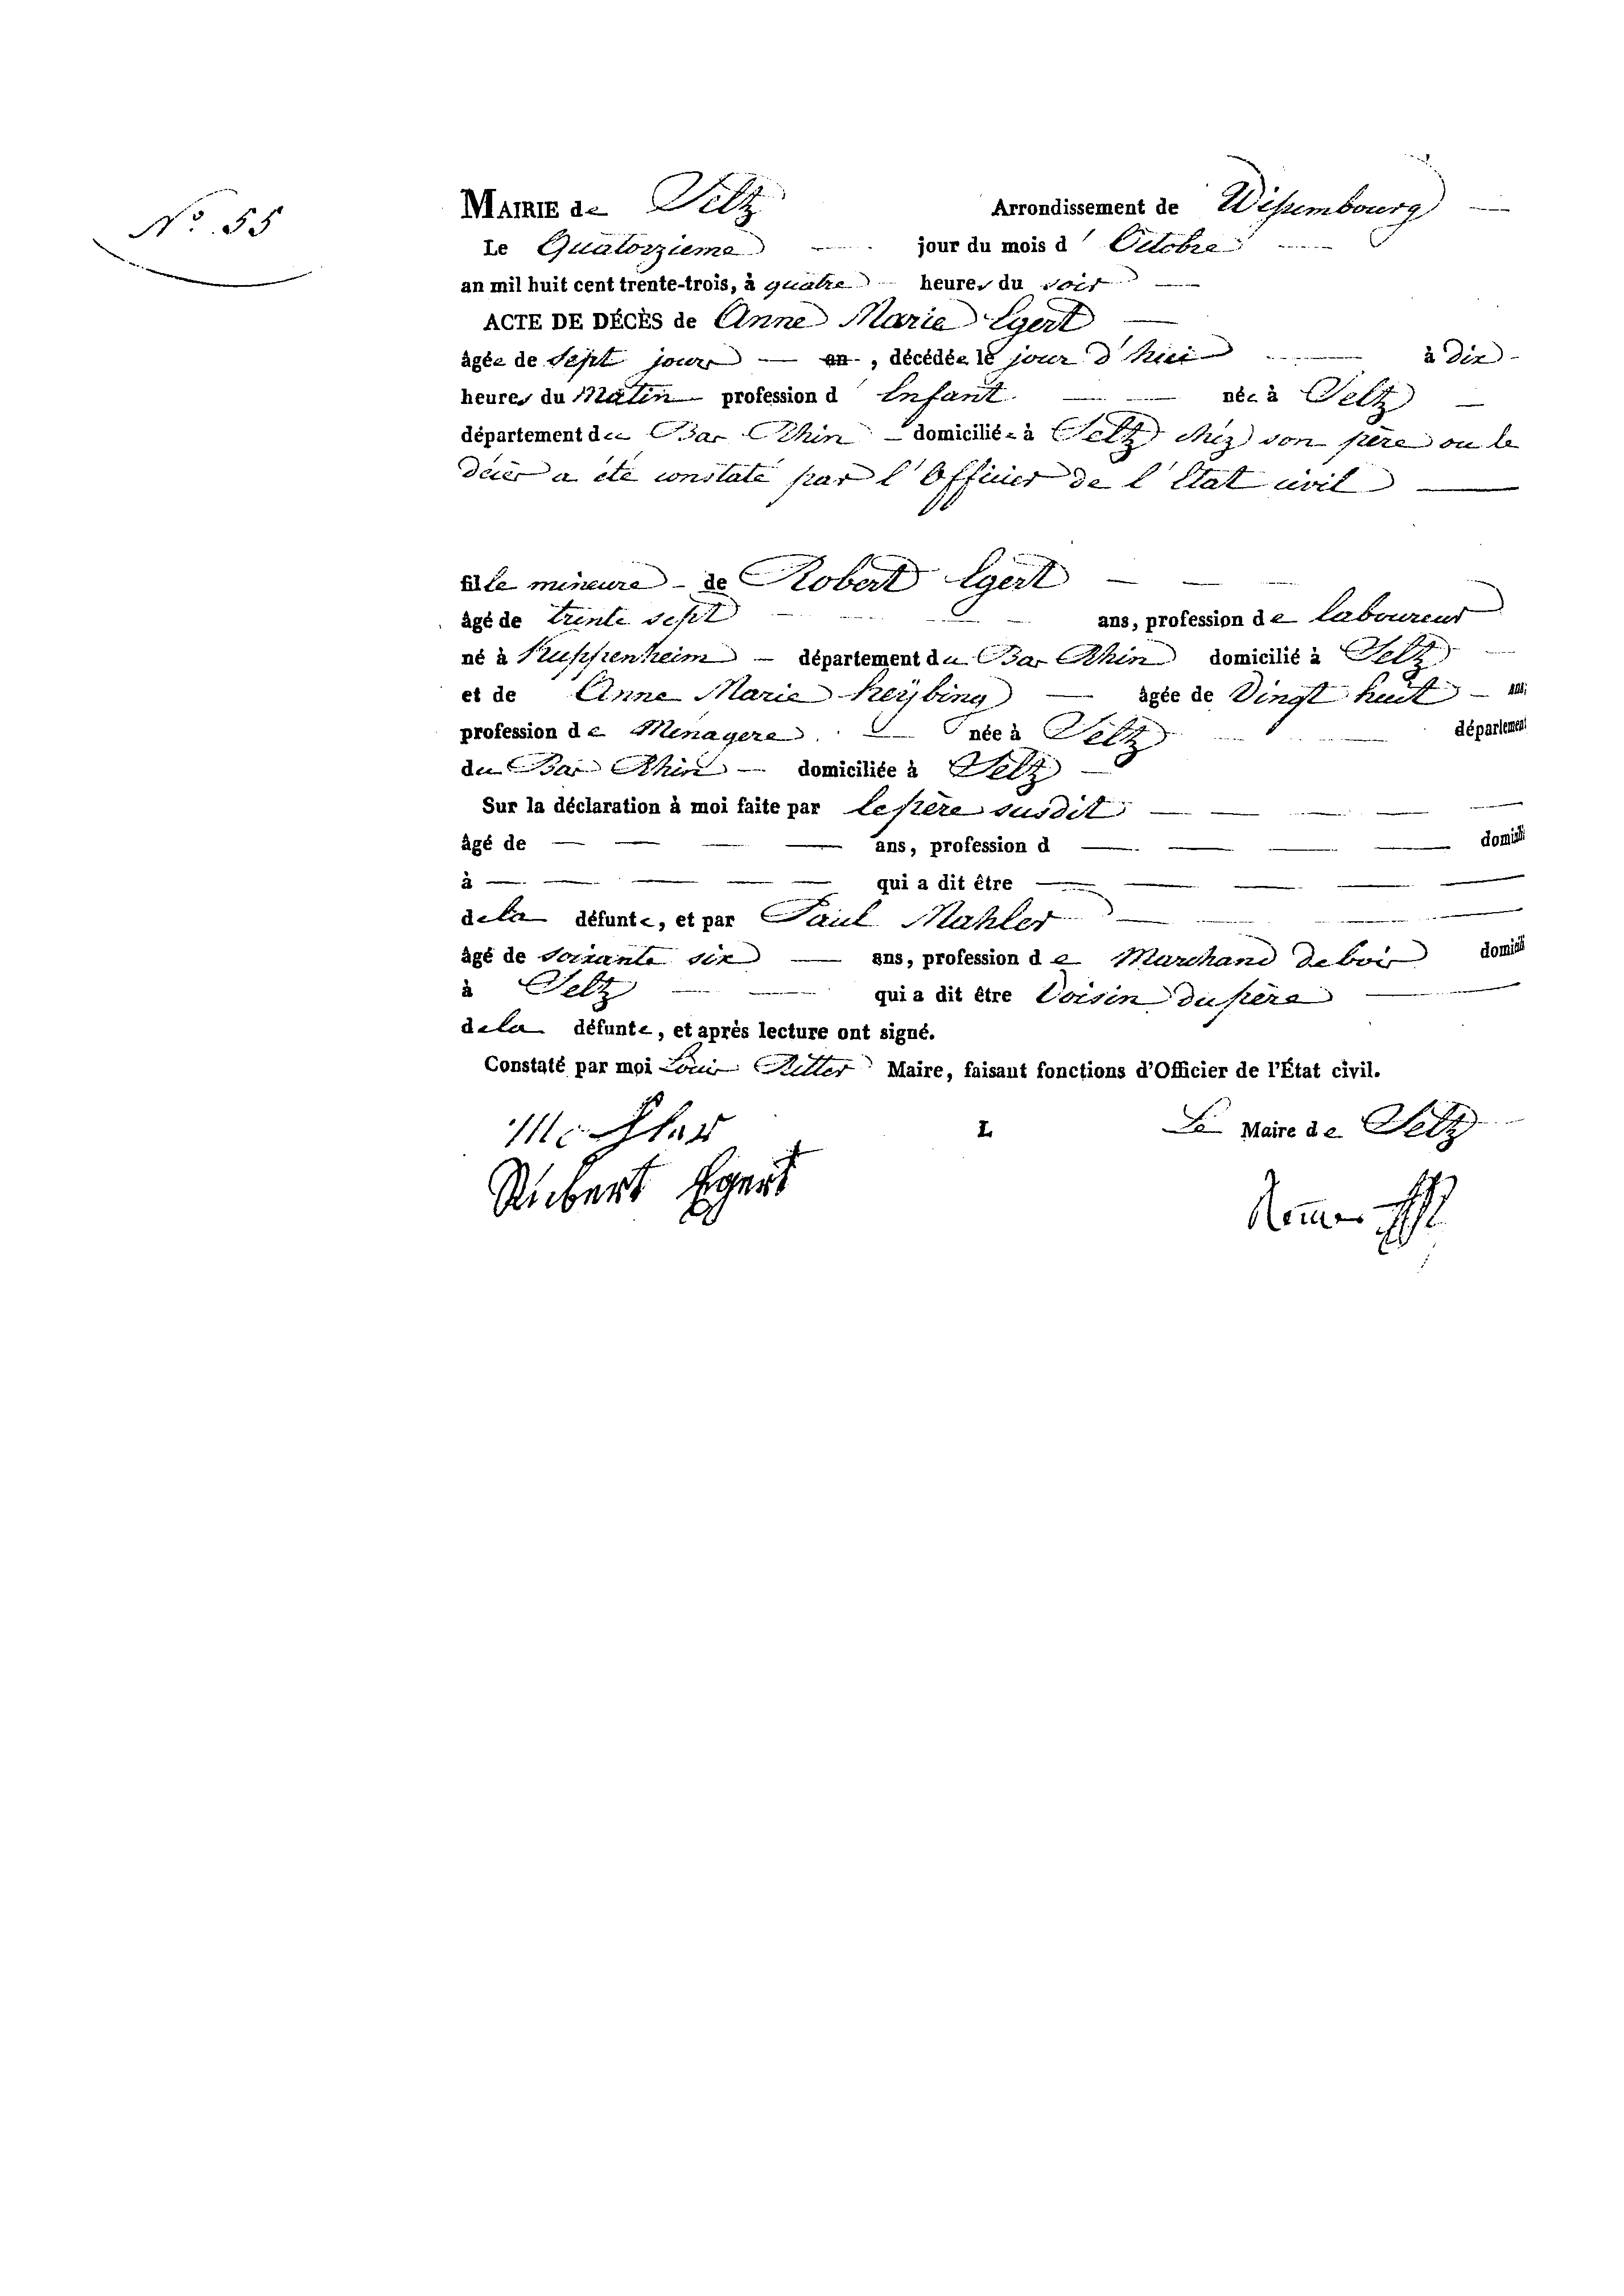 N.º 55
MAIRIE de Seltz Arrondissement de Wissembourg
Le Quatorzieme jour du mois d' Octobre
an mil huit cent trente-trois, à quatre heures du soir
ACTE DE DÉCÈS de Anne Marie Egert
âgée de sept jours an , décédée le jour d'hui à dix
heures du Matin profession d' Enfant née à Seltz
département du Bas Rhin domiciliée à Seltz chez son père ou le
décès a été constaté par l'Officier de l'Etat civil
fille mineure de Robert Egert
âgé de trente sept ans, profession de laboureur
né à Kuppenheim département du Bas Rhin domicilié à Seltz
et de Anne Marie Heÿbing âgée de Vingt huit ans,
profession de Menagere née à Seltz département
du Bas Rhin domiciliée à Seltz
Sur la déclaration à moi faite par le père susdit
âgé de ans, profession d domicilié
à qui a dit être
de la défunte, et par Paul Mahler
âgé de soixante six ans, profession de Marchand de bois domicilié
à Seltz qui a dit être Voisin du père
de la défunte, et après lecture ont signé.
Constaté par moi Louis Ritter Maire, faisant fonctions d'Officier de l'État civil.
Mahler L Le Maire de Seltz
Rubert Egert